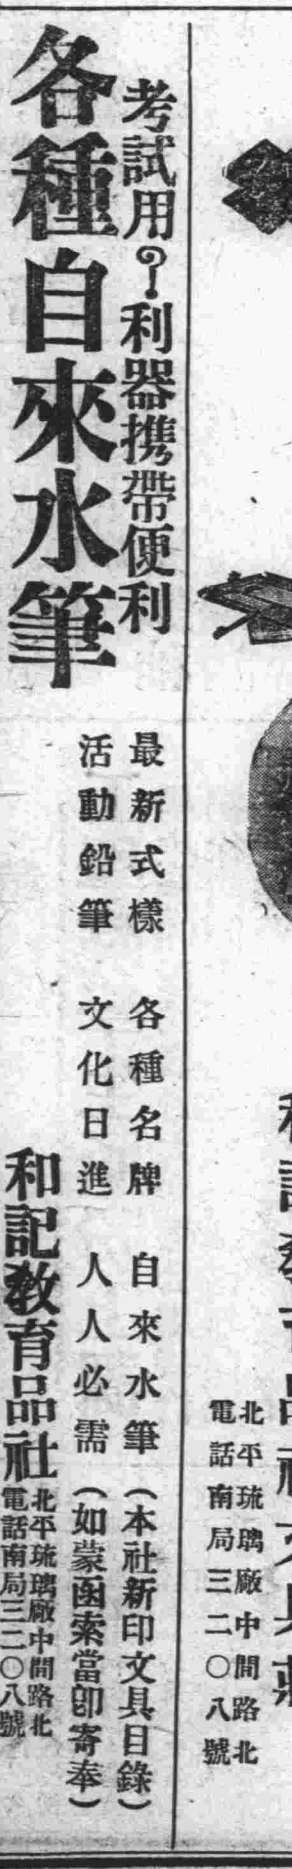 北平琉璃廠中間路北
電話南局三二〇八號
考試用利器携帶便利
各種自來水筆
最新式樣 各種名牌 自來水筆(本社新印文具目錄)
活動鉛筆 文化日進 人人必需(如蒙函索當卽寄奉)
和記教育品社
北平琉璃廠中間路北
電話南局三二〇八號